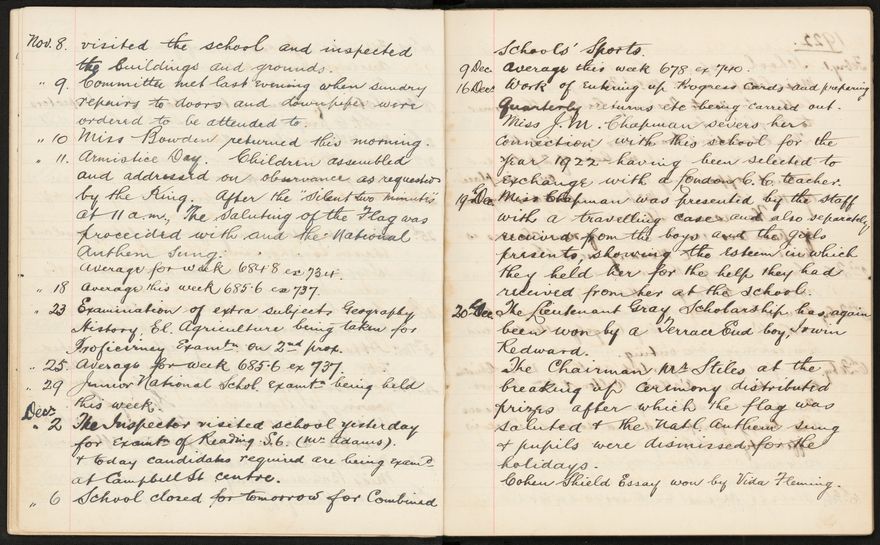 Nov. 8. visited the school and inspected
the buildings and grounds.
" 9. Committee met last evening when sundry
repairs to doors and downpipes were
ordered to be attended to.
" 10 Miss Bowden returned this morning.
" 11. Armistice Day. Children assembled
and addressed on observance as requested
by the King. After the "silent two minutes"
at 11 a.m., The Saluting of the Flag was
proceeded with and the National
Anthem Sung.
Average for week 684.8 ex 734.
" 18 Average this week 685.6 ex 737.
" 23 Examination of extra subjects Geography
History, El. Agriculture being taken for
Proficiency Examtn on 2nd prox.
" 25 Average for week 685.6 ex 737.
" 29 Junior National Schol. Examtn being held
this week.
Decr
" 2 The Inspector visited school yesterday
for Examtn of Reading S.6. (Mr Adams).
& today candidates required are being examd
at Campbell St centre.
" 6 School closed for tomorrow for Combined
1922.
Schools' Sports.
9 Dec Average this week 678 ex 740.
16 Decr Work of Entering up Progress Cards and preparing
Quarterly returns etc being carried out.
Miss J. M. Chapman severs her
connection with this school for the
year 1922 having been selected to
exchange with a London C.C. teacher.
19 Dec Miss Chapman was presented by the staff
with a travelling case and also separately
received from the boys and the girls
presents, showing the esteem in which
they held her for the help they had
received from her at the school.
20 Dec The Lieutenant Gray Scholarship has again
been won by a Terrace End boy,
Redward.
The Chairman Mr Stiles at the
breaking up ceremony distributed
prizes after which the flag was
saluted & the Natl Anthem sung
& pupils were dismissed for the
holidays.
Cohen Shield Essay won by Vida Fleming.